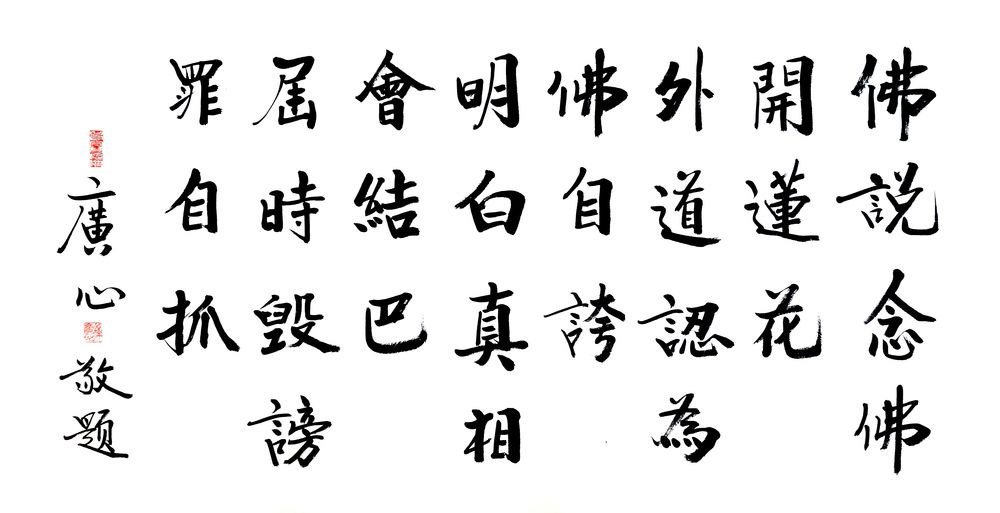 佛説念佛
開蓮花
外道認為
佛自誇
明白真相
會結巴
屆時毀謗
罪自抓
廣心敬題